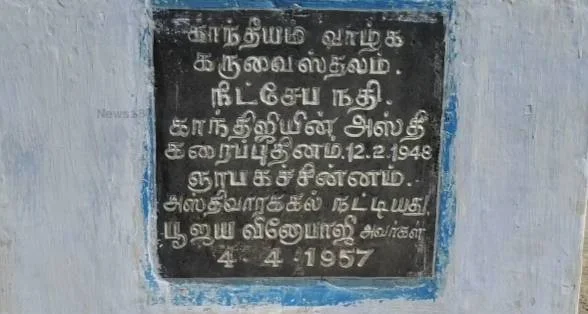 காந்தீயம் வாழ்க
கருவைஸ்தலம்.
நீட்சேப நதி.
காந்திஜியின் அஸ்தி
கரைப்புதினம்.12.2.1948
ஞாபகச்சின்னம்.
அஸ்திவாரக்கல் நட்டியது
பூஜ்ய வினோபாஜீ அவர்கள்
4-4-1957
News18